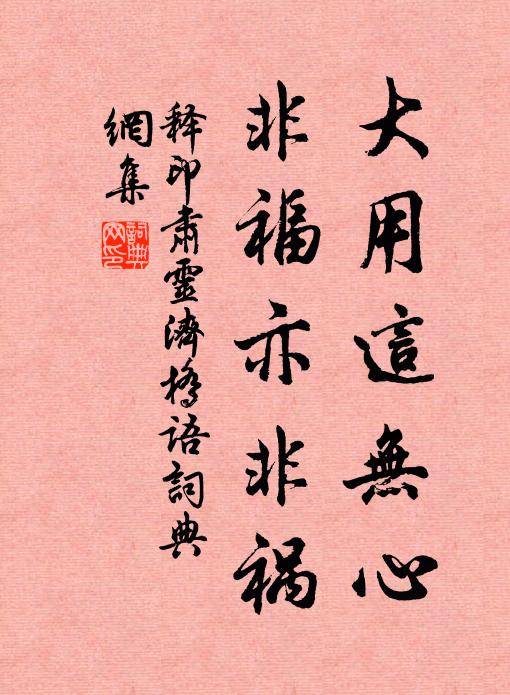 大用這無心
非福亦非祸
释印肃靈濟橋语詞典
網集
詞典
网印